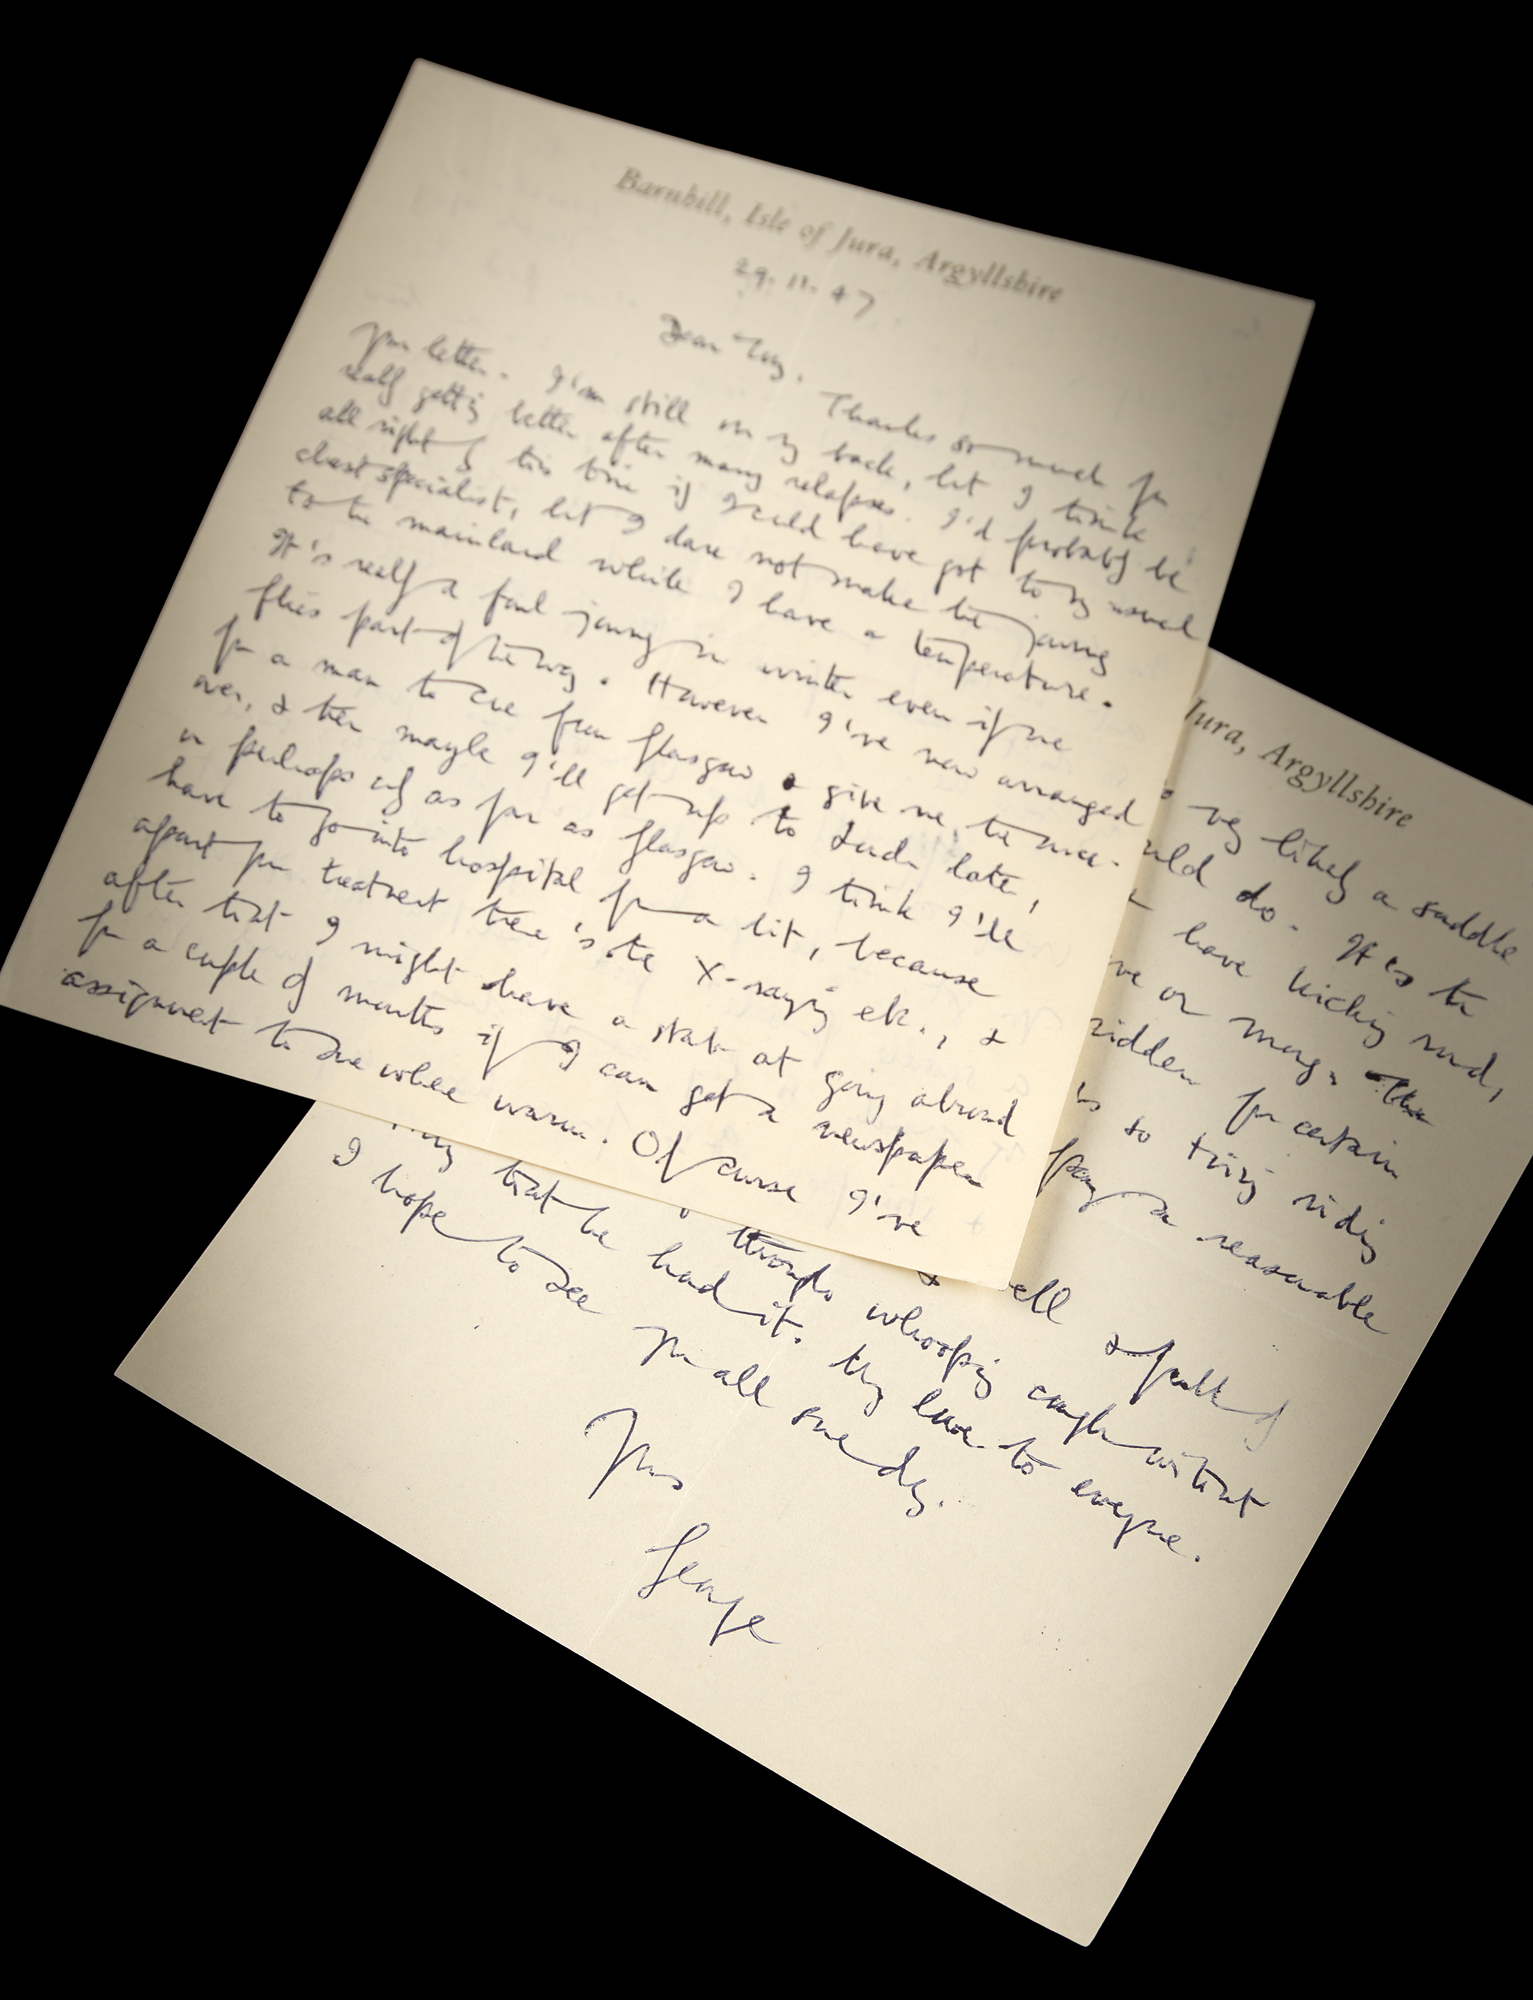 Barnhill, Isle of Jura, Argyllshire
29.11.47
Dear Tony, Thanks so much for
your letter. I'm still on my back, but I think
really getting better after many relapses. I'd probably be
all right by this time if I could have got to my usual
chest specialist, but I dare not make the journey
to the mainland while I have a temperature.
It's really a foul journey in winter even if one
flies part of the way. However I've now arranged
for a man to come from Glasgow & give me the once-
over, & then maybe I'll get up to London later,
or perhaps only as far as Glasgow. I think I'll
have to go into hospital for a bit, because
apart from treatment there's the X-raying etc., &
after that I might have a stab at going abroad
for a couple of months if I can get a newspaper
assignment to somewhere warm. Of course I've
Jura, Argyllshire
very likely a saddle
uld do. It is the
have kicking round,
ve or mange. The
ridden for certain
is so tiring riding
pay a reasonable
ell & full of
through whooping cough without
that he had it. My love to everyone.
I hope to see you all one day.
Yours
George